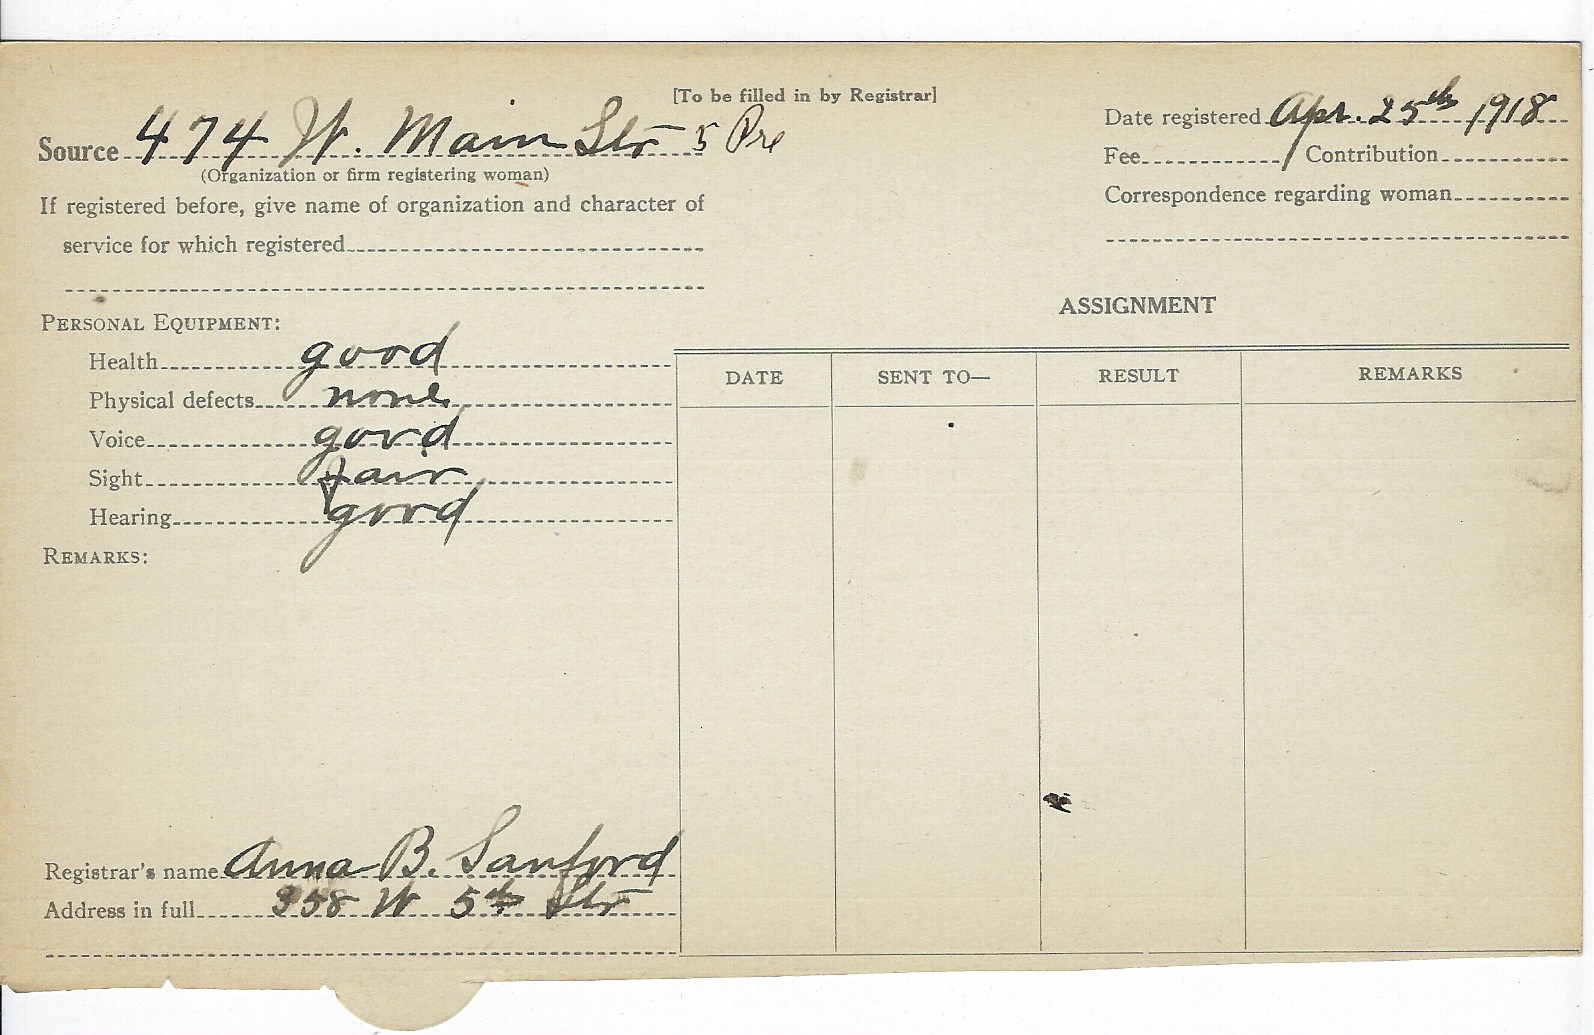 [To be filled in by Registrar]
Source 474 W. Main Str 5 Pre
(Organization or firm registering woman)
If registered before, give name of organization and character of
service for which registered
Date registered Apr. 25th 1918
Fee / Contribution
Correspondence regarding woman
PERSONAL EQUIPMENT:
Health good
Physical defects none
Voice good
Sight fair
Hearing good
REMARKS:
Registrar's name Anna B. Sanford
Address in full 358 W 5th Str
ASSIGNMENT
DATE SENT TO— RESULT REMARKS